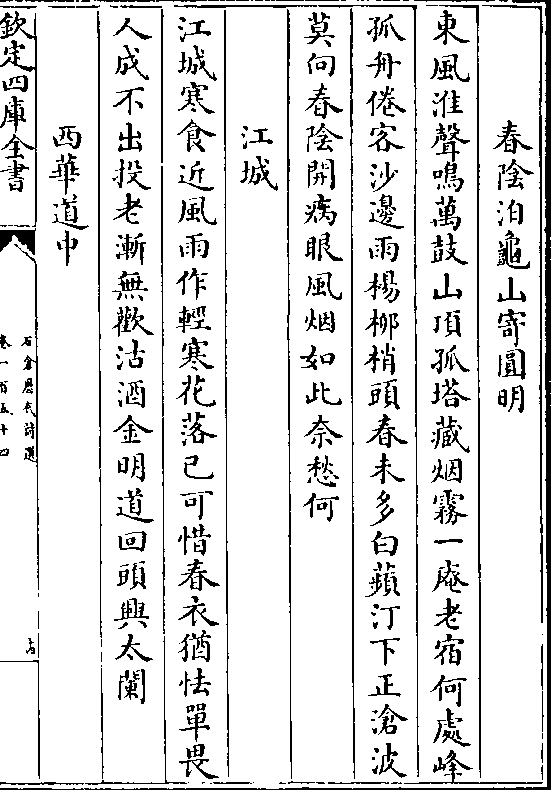 春陰泊龜山寄圓明
東風淮聲鳴萬鼓山頂孤塔藏烟霧一庵老宿何處峰
孤舟倦客沙邊雨楊柳梢頭春未多白蘋汀下正滄波
莫向春陰開病眼風烟如此奈愁何
江城
江城寒食近風雨作輕寒花落已可惜春衣猶怯單畏
人成不出投老漸無歡沽酒金明道回頭興太闌
西華道中
欽定四庫全書
石倉歷代詩選
卷一百五十四